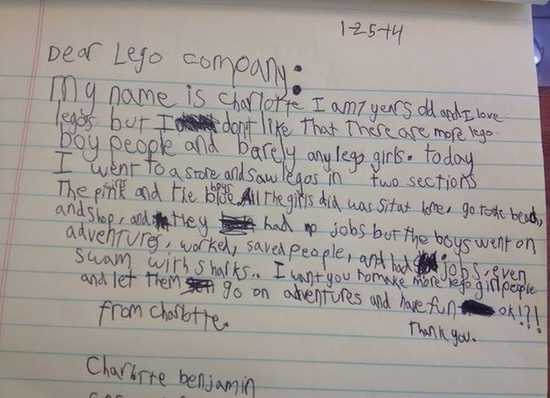 1-25-14
Dear Lego company:
My name is Charlotte I am 7 years old and I love
legos but I don't like that there are more lego
boy people and barely any lego girls. today
I went to a store and saw legos in two sections
The pink girls and the blue boys. All the girls did was sit at home, go to the beach,
and shop, and they had no jobs but the boys went on
adventures, worked, saved people, and had jobs, even
swam with sharks.. I want you to make more lego girl people
and let them go on adventures and have fun ok!?!
from Charlotte. Thank you.
Charlotte benjamin